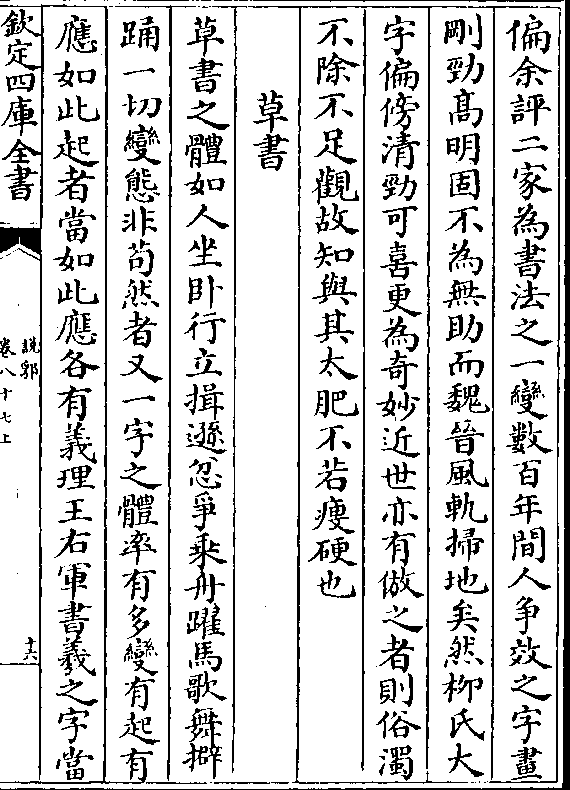 偏余評二家為書法之一變數百年間人争效之字畫
剛勁髙明固不為無助而魏晉風軌掃地矣然柳氏大
字偏傍清勁可喜更為奇妙近世亦有倣之者則俗濁
不除不足觀故知與其太肥不若瘦硬也
草書
草書之體如人坐卧行立揖遜忿爭乘舟躍馬歌舞擗
踊一切變態非苟然者又一字之體率有多變有起有
應如此起者當如此應各有義理王右軍書羲之字當
欽定四庫全書
說郛
卷八十七上
十六